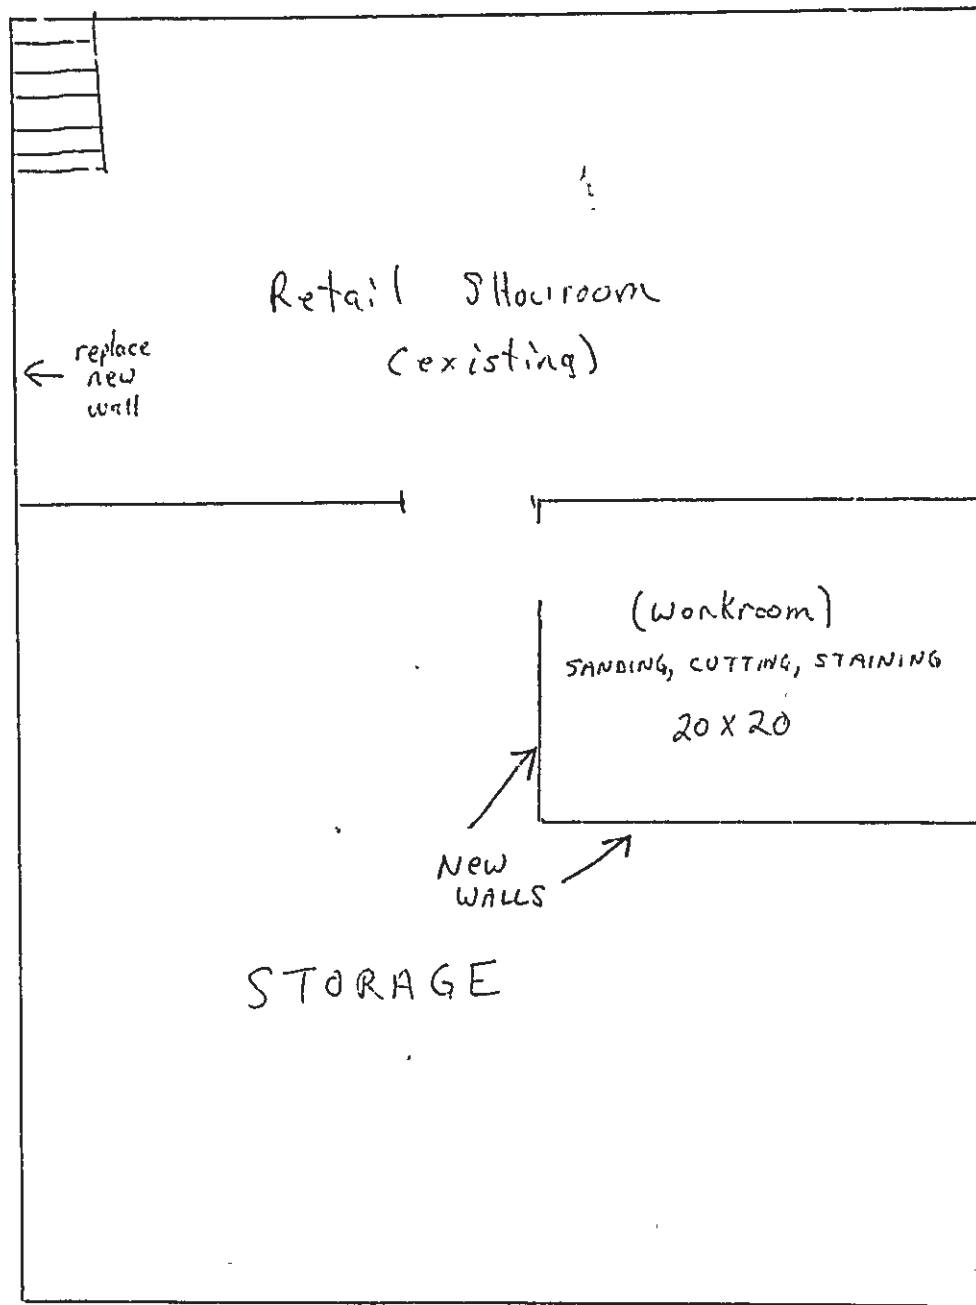 Retail Showroom
(existing)
← replace
new
wall
(Workroom)
SANDING, CUTTING, STAINING
20 X 20
New
WALLS
STORAGE